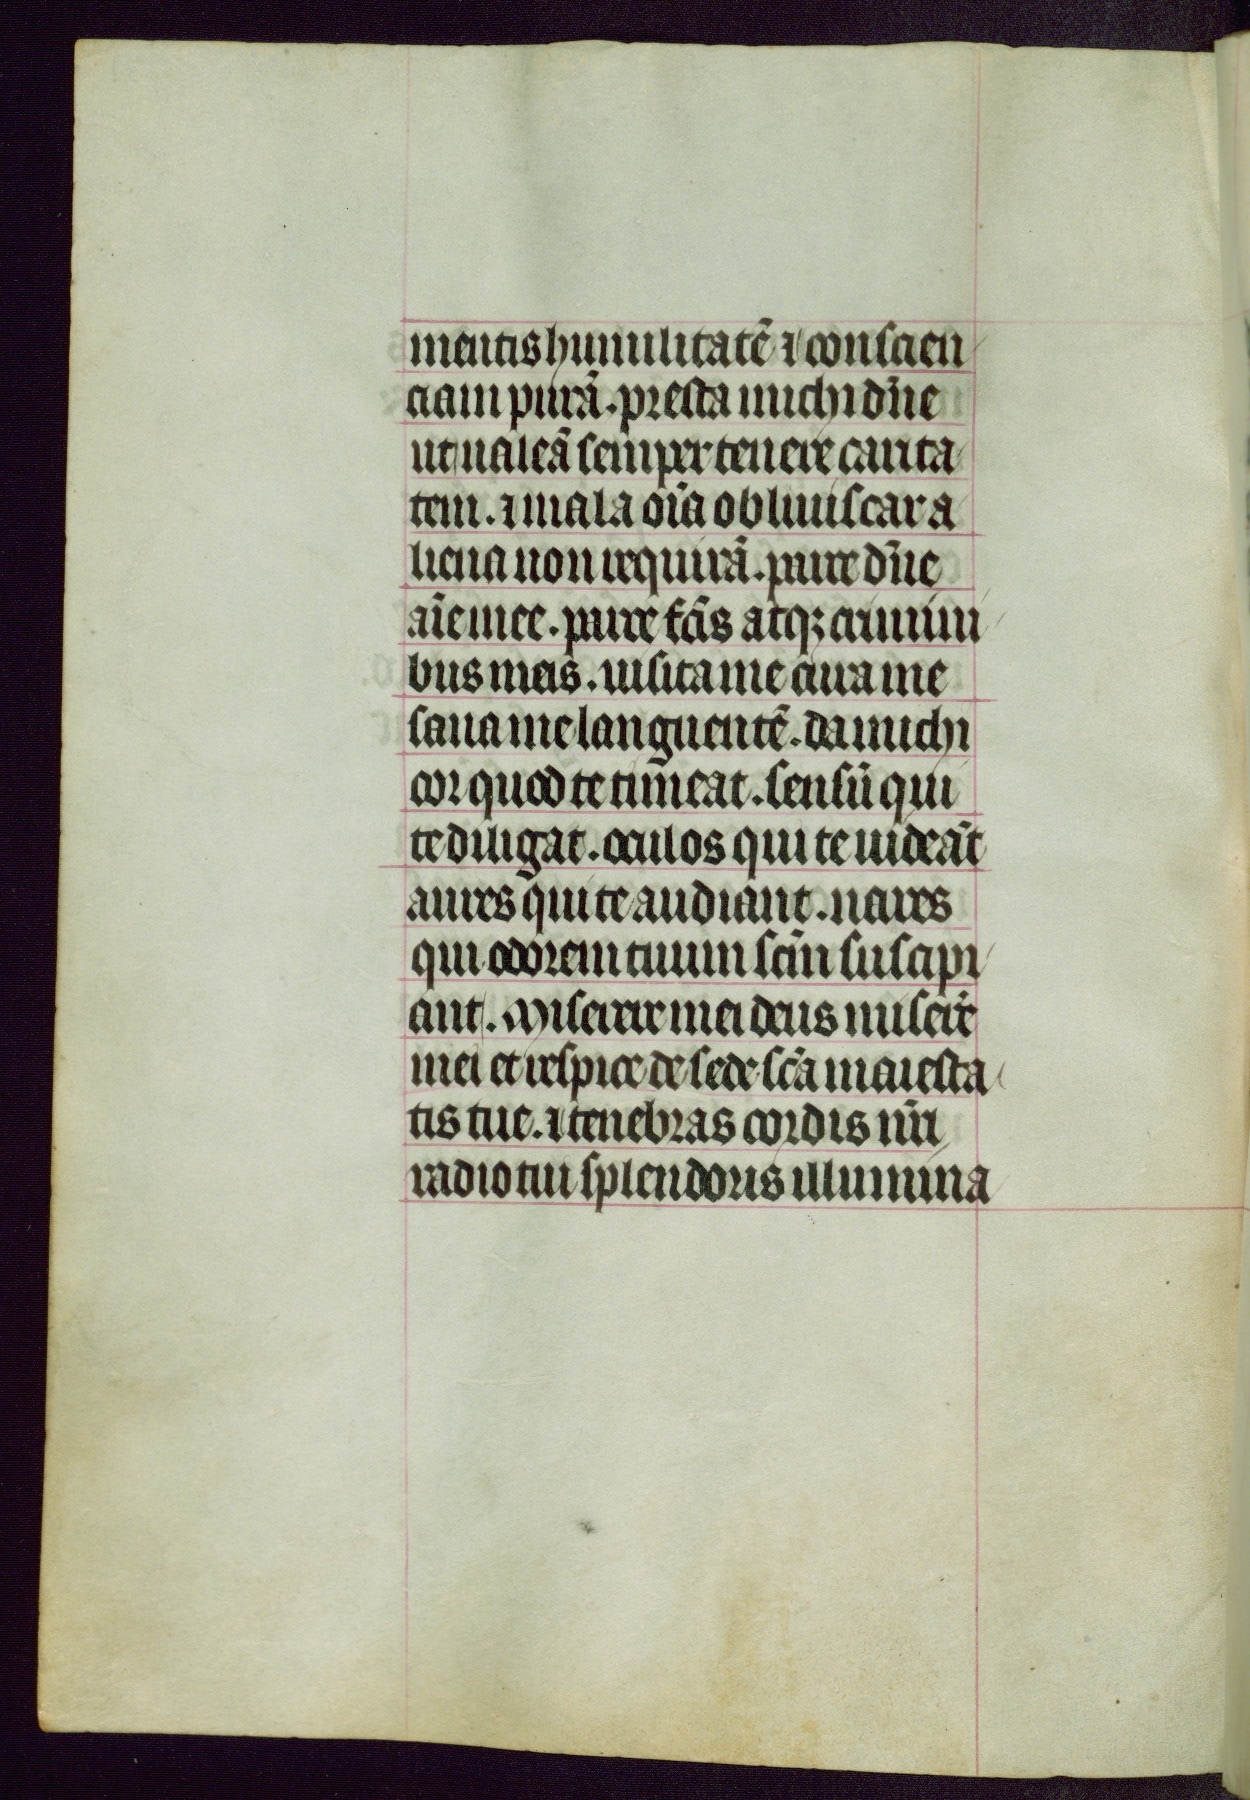 mentis humilitatē ⁊ conscien
ciam purā. presta michi dn̄e
ut ualeā semper tenere carita
tem. ⁊ mala oīa obliuiscar a
liena non requirā. parce dn̄e
aīe mee. parce fc̄is atqꝫ crimini
bus meis. uisita me cura me
sana me languentē. da michi
cor quod te timeat. sensū qui
te diligat. oculos qui te uideāt
aures qui te audiant. nares
qui odorem tuum scm̄ suscipi
ant. Miserere mei deus miserē
mei et respice de sede scā maiesta
tis tue. ⁊ tenebras cordis nr̄i
radio tui splendoris illumina